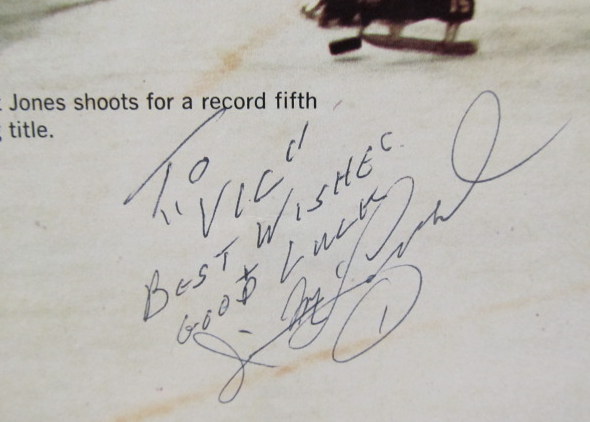 Jones shoots for a record fifth
title.
TO
"VIC"
BEST WISHES
GOOD LUCK
Jim McDonald
1